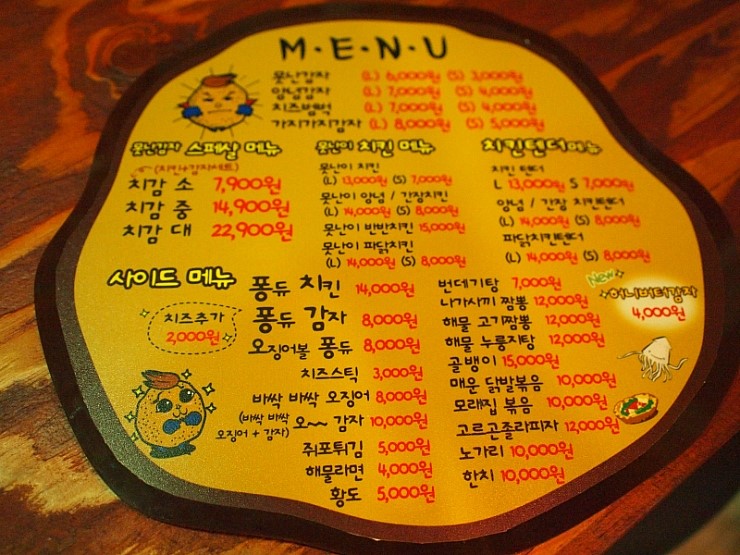 M·E·N·U
못난감자 (L) 6,000원 (S) 3,000원
양념감자 (L) 7,000원 (S) 4,000원
치즈범벅 (L) 7,000원 (S) 4,000원
가지가지감자 (L) 8,000원 (S) 5,000원
못난감자 스페샬 메뉴
(치킨+감자세트)
치감 소 7,900원
치감 중 14,900원
치감 대 22,900원
못난이 치킨 메뉴
못난이 치킨
(L) 13,000원 (S) 7,000원
못난이 양념 / 간장치킨
(L) 14,000원 (S) 8,000원
못난이 반반치킨 15,000원
못난이 파닭치킨
(L) 14,000원 (S) 8,000원
치킨텐더메뉴
치킨 텐더
L 13,000원 S 7,000원
양념 / 간장 치킨텐더
(L) 14,000원 (S) 8,000원
파닭치킨텐더
(L) 14,000원 (S) 8,000원
사이드 메뉴
치즈추가
2,000원
퐁듀 치킨 14,000원
퐁듀 감자 8,000원
오징어볼 퐁듀 8,000원
치즈스틱 3,000원
바싹 바싹 오징어 8,000원
(바싹 바싹 오징어 + 감자) 오~~ 감자 10,000원
쥐포튀김 5,000원
해물라면 4,000원
황도 5,000원
번데기탕 7,000원
나가사끼 짬뽕 12,000원
해물 고기짬뽕 12,000원
해물 누룽지탕 12,000원
골뱅이 15,000원
매운 닭발볶음 10,000원
모래집 볶음 10,000원
고르곤졸라피자 12,000원
노가리 10,000원
한치 10,000원
New
허니버터감자
4,000원